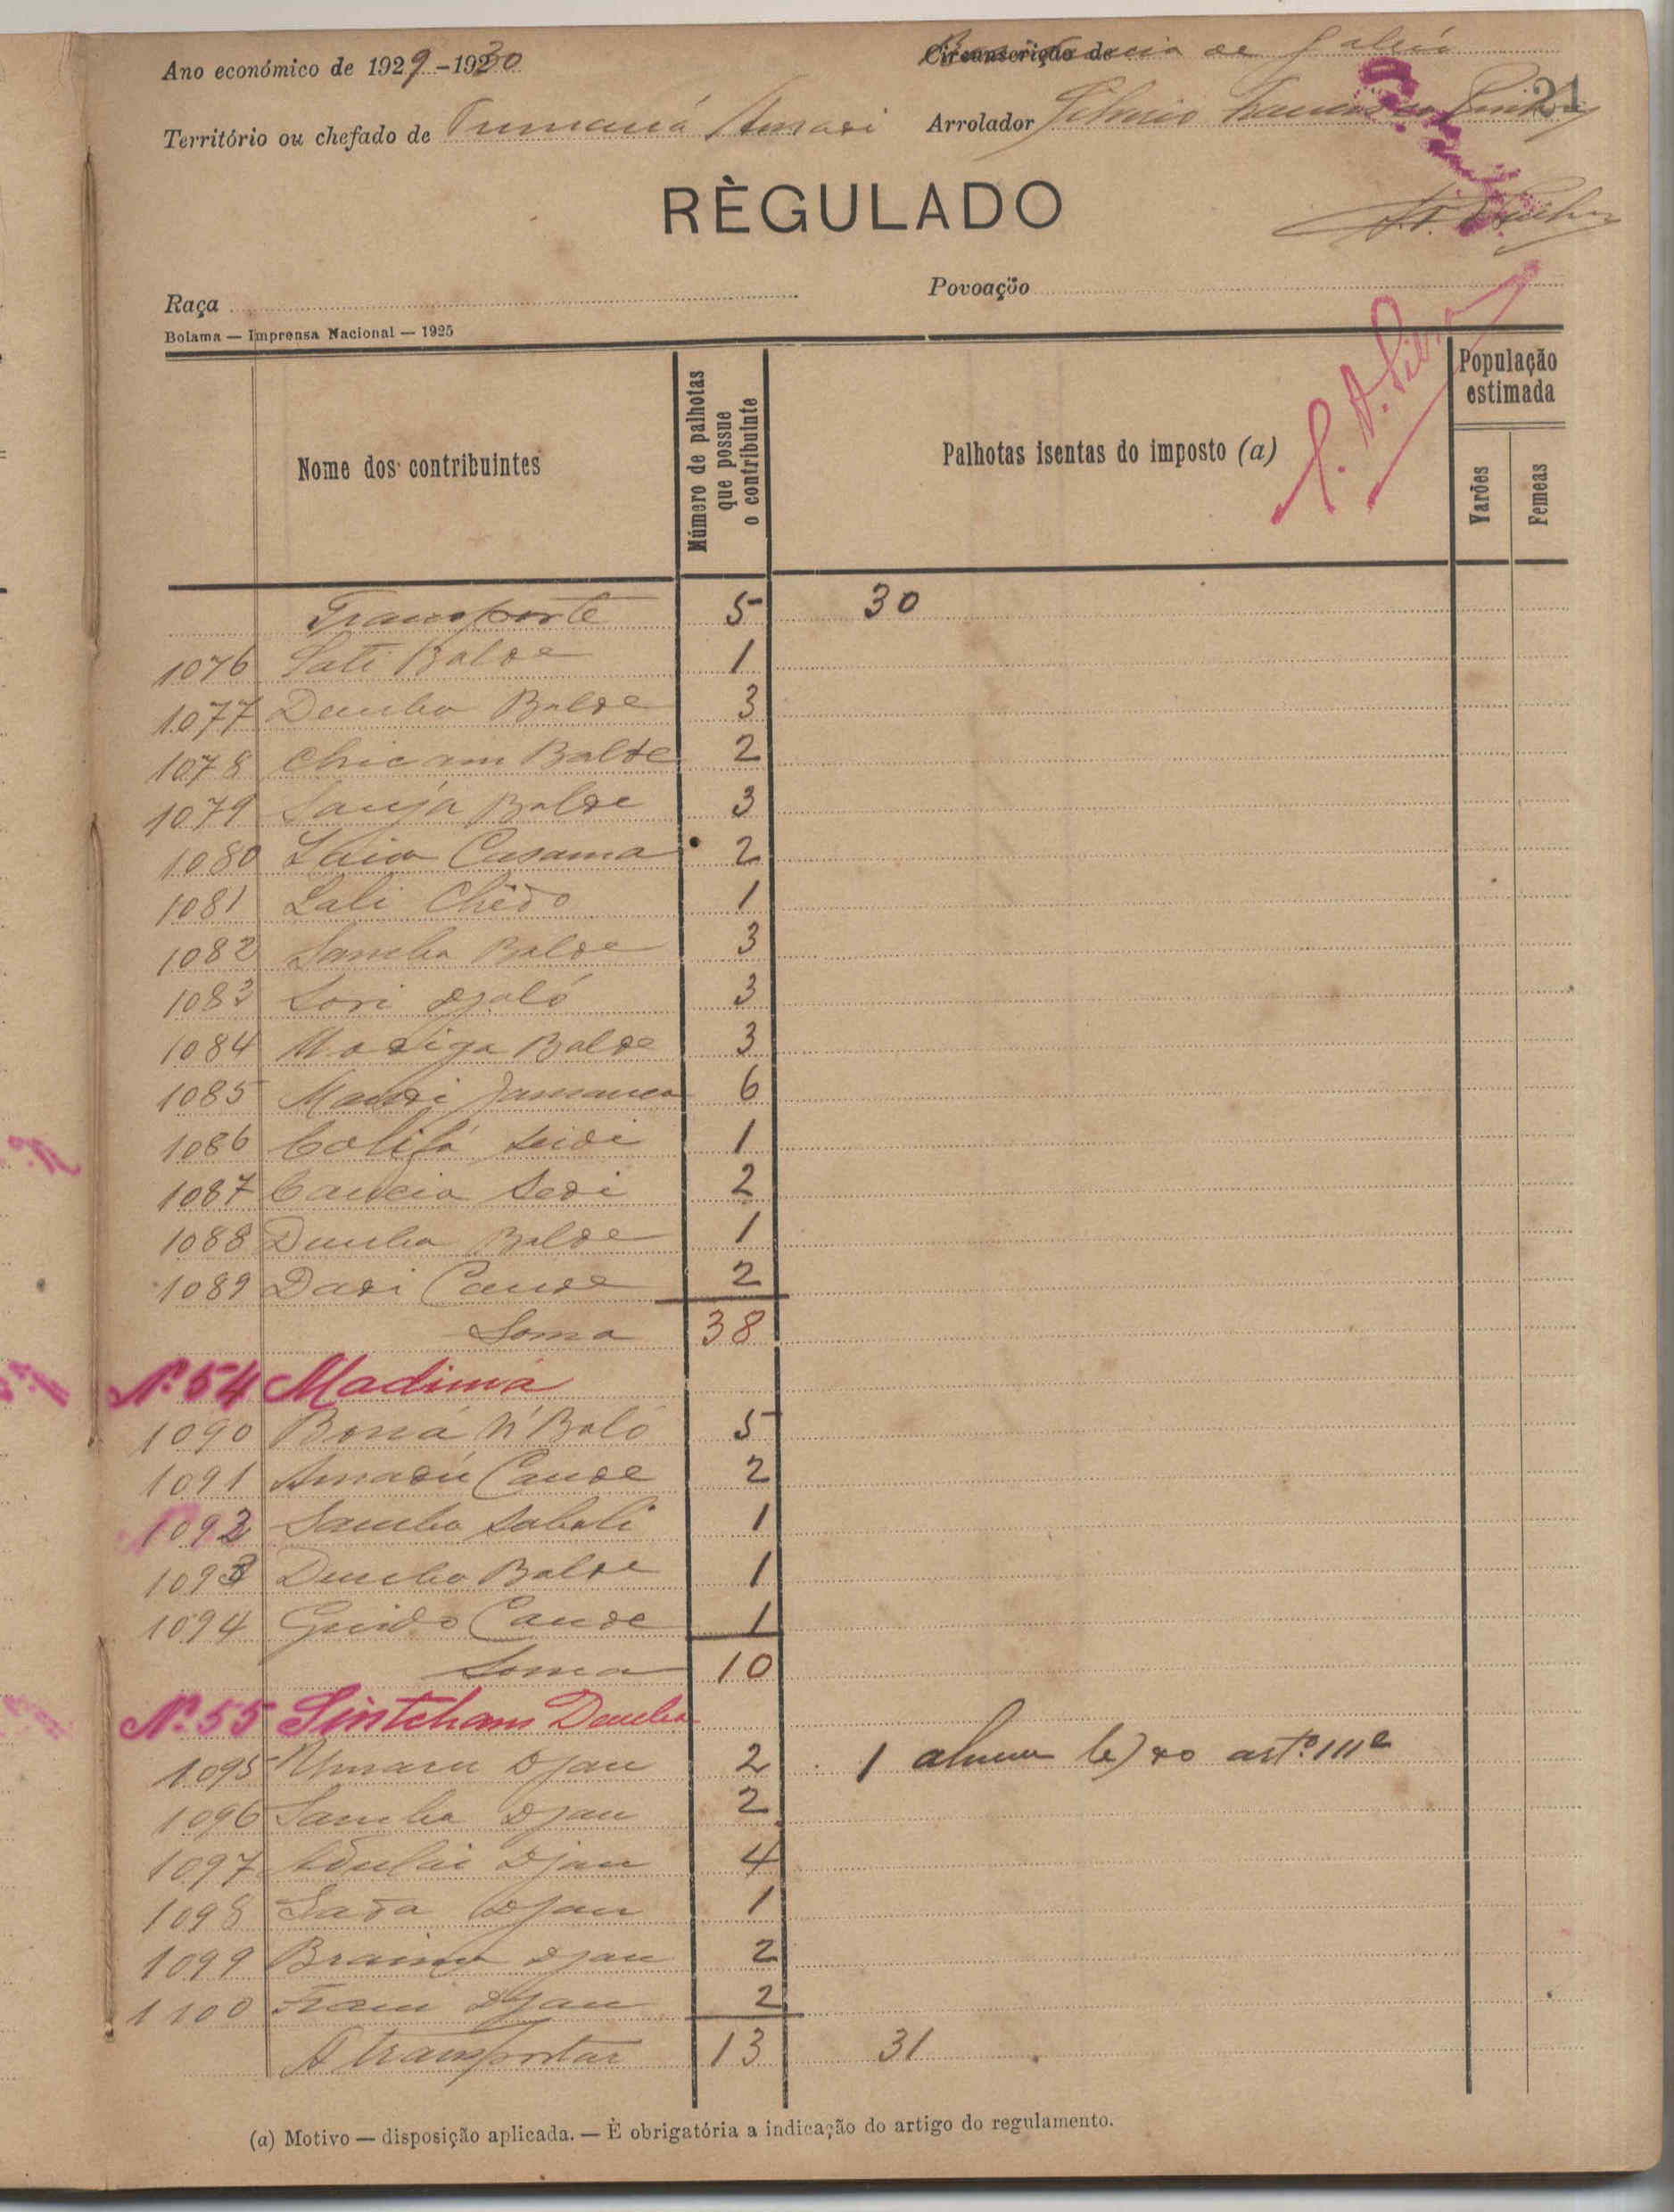 Ano económico de 1929-1930
Circunscrição de
21
Território ou chefado de Amadi Arrolador
RÈGULADO
Raça Povoação
Bolama — Imprensa Nacional — 1925
Nome dos contribuintes
Número de palhotas que possue o contribuinte
Palhotas isentas do imposto (a)
População estimada
Varões
Femeas
Transporte 5 30
1076 Sati Balde 1
1077 Demba Balde 3
1078 Balde 2
1079 Balde 3
1080 Casama 2
1081 Lali Chêdo 1
1082 Samba Balde 3
1083 Lori Djaló 3
1084 Balde 3
1085 6
1086 Califá Seidi 1
1087 Sedi 2
1088 Demba Balde 1
1089 Dadi Cande 2
Soma 38
Nº 54 Madiná
1090 5
1091 Amadú Cande 2
1092 Samba Sabali 1
1093 Demba Balde 1
1094 Guido Cande 1
Soma 10
Nº 55 Sintcham Demba
1095 Umaru Djau 2 1 b) do artº 111º
1096 Samba Djau 2
1097 Djau 4
1098 Sada Djau 1
1099 Braima Djau 2
1100 Djau 2
A transportar 13 31
(a) Motivo — disposição aplicada. — È obrigatória a indicação do artigo do regulamento.